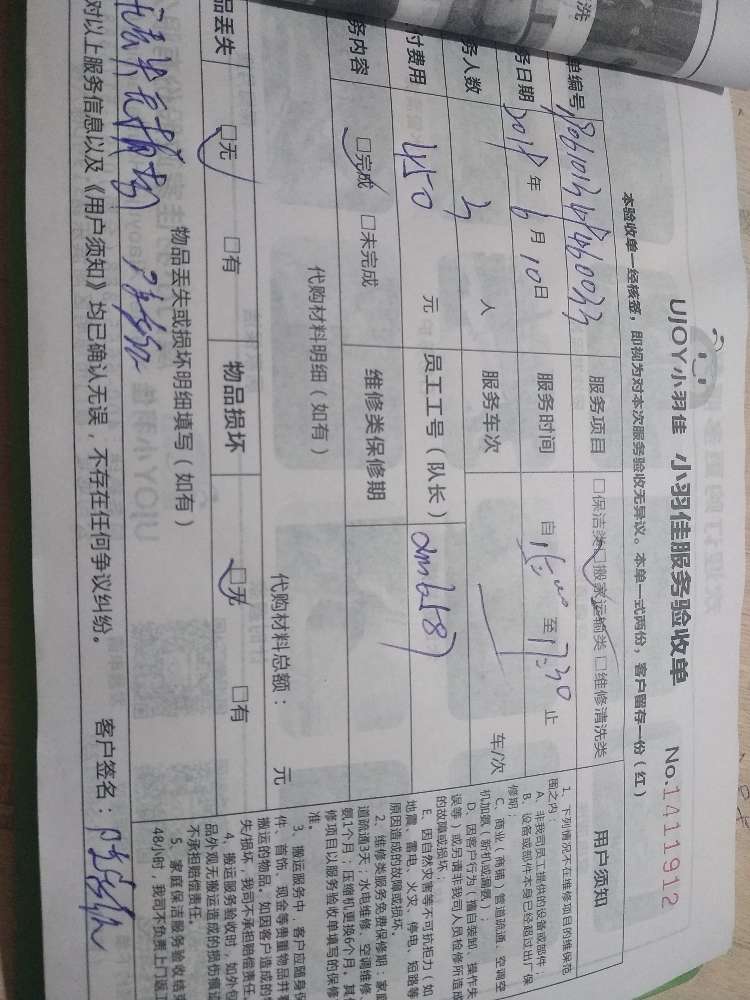 洗
UJOY小羽佳 小羽佳服务验收单 No.1411912
本验收单一经核签，即视为对本次服务验收无异议。本单一式两份，客户留存一份（红）
单编号
服务项目 □保洁类□搬家运输类□维修清洗类
务日期 2018年6月10日
服务时间 自 15:00 至 17:30 止
务人数 3 人
服务车次 车/次
付费用 450 元
员工工号（队长） dm6587
务内容 □完成 □未完成
维修类保修期
代购材料明细（如有）
代购材料总额： 元
品丢失 □无 □有
物品损坏 □无 □有
物品丢失或损坏明细填写（如有）
对以上服务信息以及《用户须知》均已确认无误，不存在任何争议纠纷。 客户签名：
用户须知
1、下列情况不在维修项目的维保范
围之内：
A、非我司员工提供的设备或部件；
B、设备或部件本身已经超过出厂保
修期；
C、商业（商铺）管道疏通，空调空
机加氨（新机或漏氨）；
D、因客户行为（擅自装卸、操作失
误等）或另请非我司人员检修所造成
的故障或损坏；
E、因自然灾害等不可抗拒力（如
地震、雷电、火灾、停电、短路等
原因造成的故障或损坏。
2、维修类服务免费保修期：家庭
道疏通3天；水电维修、空调维修
氨1个月；压缩机更换6个月，其
修项目以服务验收单填写的保修
准。
3、搬运服务中，客户应随身保
件、首饰、现金等贵重物品并看
搬运的物品。如因客户造成的
失/损坏，我司不承担赔偿责任。
4、搬运服务验收时，如外包
品外观无搬运造成的损伤痕迹
不承担赔偿责任。
5、家庭保洁服务验收结束
48小时，我司不负责上门返工